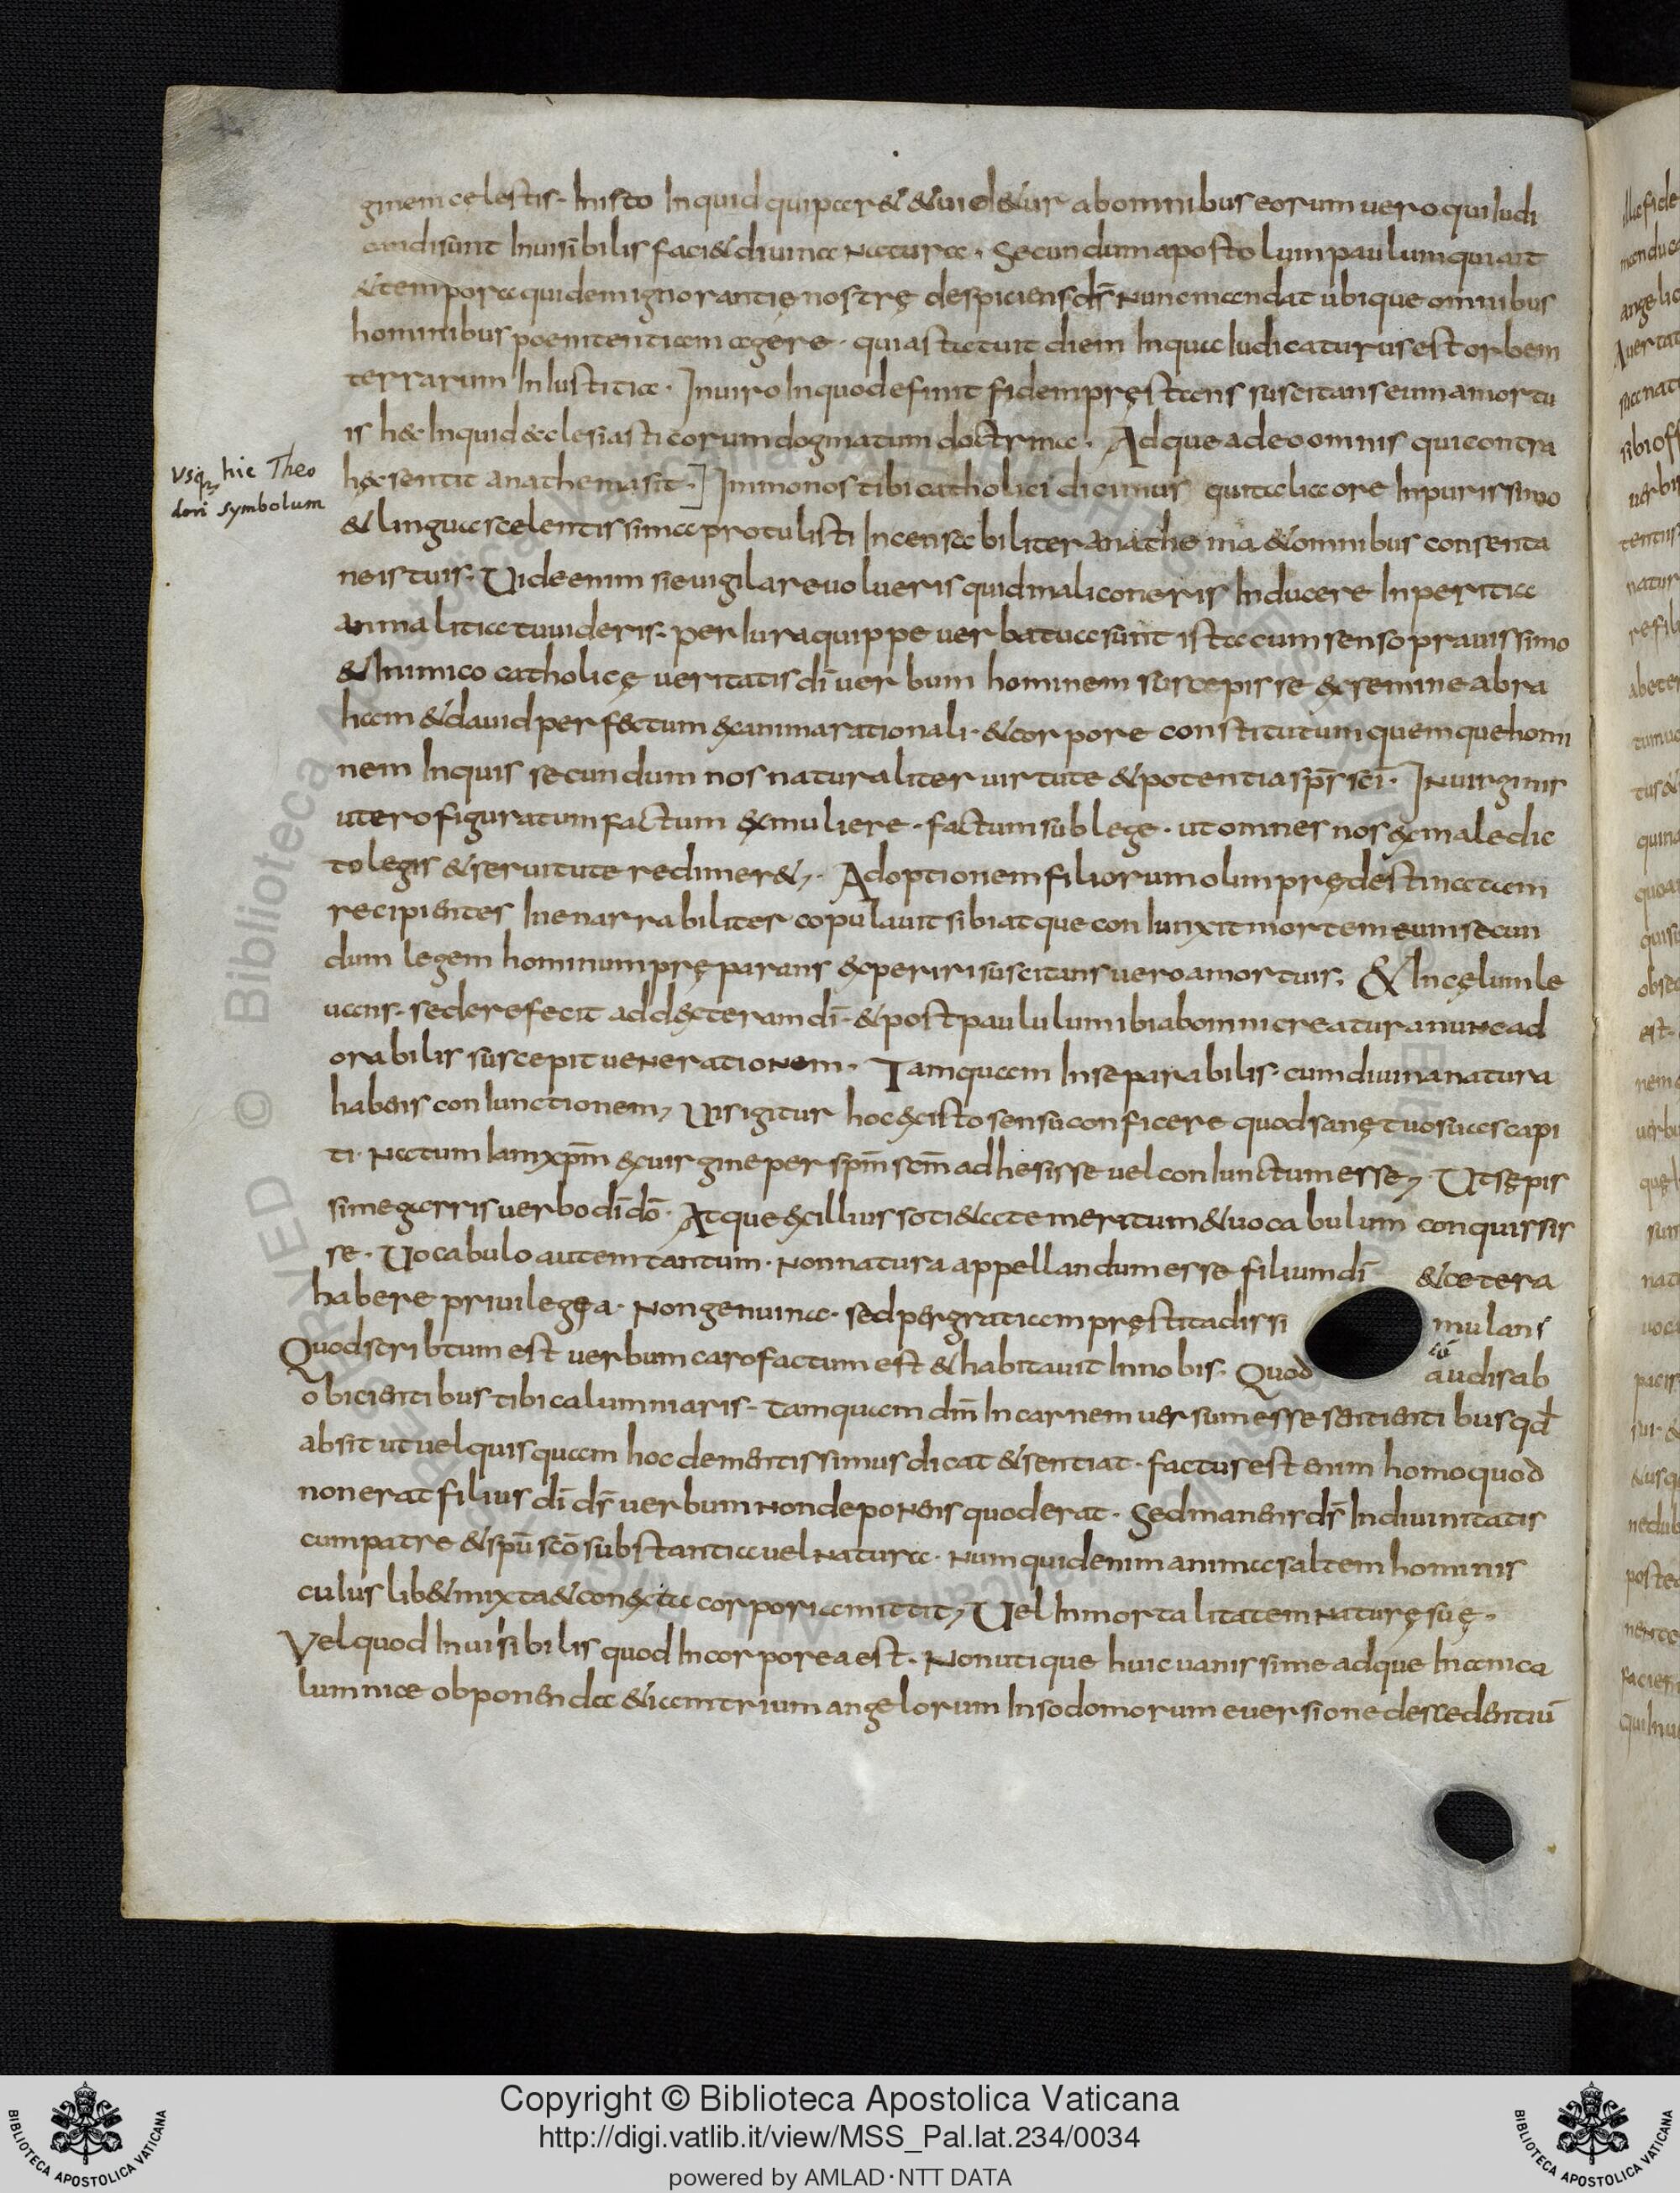 ginem cęlestis. In isto inquid qui paret & uidetur ab omnibus eorum uero qui iudi
candi sunt inuisibilis faciet diuina natura. Secundum apostolum paulum qui ait
& tempora quidem ignorantię nostrę despiciens ds̄ nunc mandat ubique omnibus
hominibus poenitentiam agere. quia statuit diem in qua iudicaturus est orbem
terrarum in iustitia. In uiro in quo definit fidem pręstans suscitans eum a mortu
is hæc inquid ecclesiasticorum dogmatum doctrina. Adque adeo omnis qui contra
hęc sentit anathema sit.] Immo nos tibi catholici dicimus qui talia ore inpurissimo
& lingua scelentissima protulisti incensabiliter anathema & omnibus consenta
neis tuis. Uide enim si euigilare uolueris quid mali coneris inducere inperitia
anima litia tu uideris. per iura quippe uerba tua sunt ista cum senso prauissimo
& inimico catholicę ueritatis dī uerbum hominem suscepisse ex semine abra
ham & dauid perfectum ex anima rationali. & corpore constitutum quemque homi
nem inquis secundum nos naturaliter uirtute & potentia sps̄ scī. In uirginis
utero figuratum factum ex muliere. factum sub lege. ut omnes nos ex maledic
to legis & seruitute redimeret. Adoptionem filiorum olim prędestinatam
recipientes inenarrabiliter copulauit sibi atque coniunxit mortem eum secun
dum legem hominum pręparans experiri suscitans uero a mortuis. & in cęlum le
uans. sedere fecit ad dexteram dī. & post paululum ibi ab omni creatura nunc ad
orabilis suscepit uenerationem. Tamquam inseparabilis. cum diuina natura
habens coniunctionem, Uis igitur hoc ex isto sensu conficere quod sanę tuo suas capi
ti. natum iam xp̄m ex uirgine per spm̄ scm̄ adhesisse uel coniunctum esse, Ut sępis
sime garris uerbo dī dō. Atque ex illius sotietate meritum & uocabulum conquissis
se. Uocabulo autem tantum. non natura appellandum esse filium dī & cetera
habere priuilegęa. non genuina. sed per gratiam pręstita dissi mulans
Quod scribtum est uerbum caro factum est & habitauit in nobis. Quod cū audis ab
obicientibus tibi calumniaris. tamquam dm̄ in carnem uersum esse sentientibus qđ
absit ut uel quisquam hoc dementissimus dicat & sentiat. factus est enim homo quod
non erat filius dī ds̄ uerbum non deponens quod erat. Sed manens ds̄ in diuinitatis
cum patre & spū scō substantia uel natura. numquid enim anima saltem hominis
cuius libet mixta & conexta corpori amittit, Uel inmortalitatem naturę suę.
Vel quod inuisibilis quod incorporea est. Non utique huic uanissime adque inani ca
lumniæ obponenda & iam trium angelorum in sodomorum euersione descedentiū
Vsq; hic Theo
dori symbolum
Copyright © Biblioteca Apostolica Vaticana
http://digi.vatlib.it/view/MSS_Pal.lat.234/0034
powered by AMLAD·NTT DATA
BIBLIOTECA APOSTOLICA VATICANA
BIBLIOTECA APOSTOLICA VATICANA